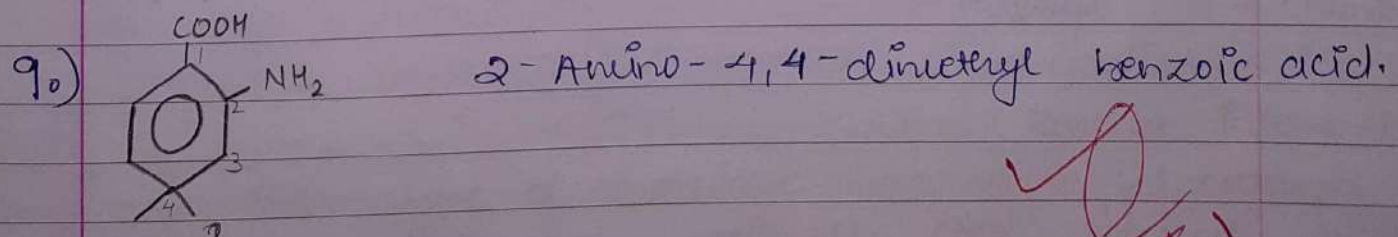 9.)
COOH
1
NH2
2
3
4
2-Amino-4,4-dimethyl benzoic acid.